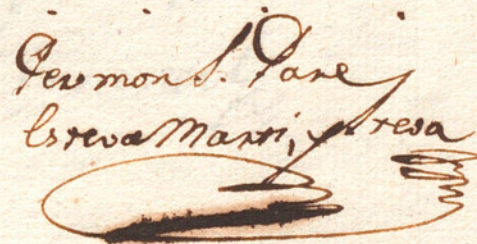 Per mon S. Pare
Esteva Marti, y Treva